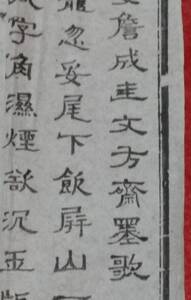 詹成圭文房齋墨歌
龍忽妥尾下飲屏山
字角濕煙欲沉玉版